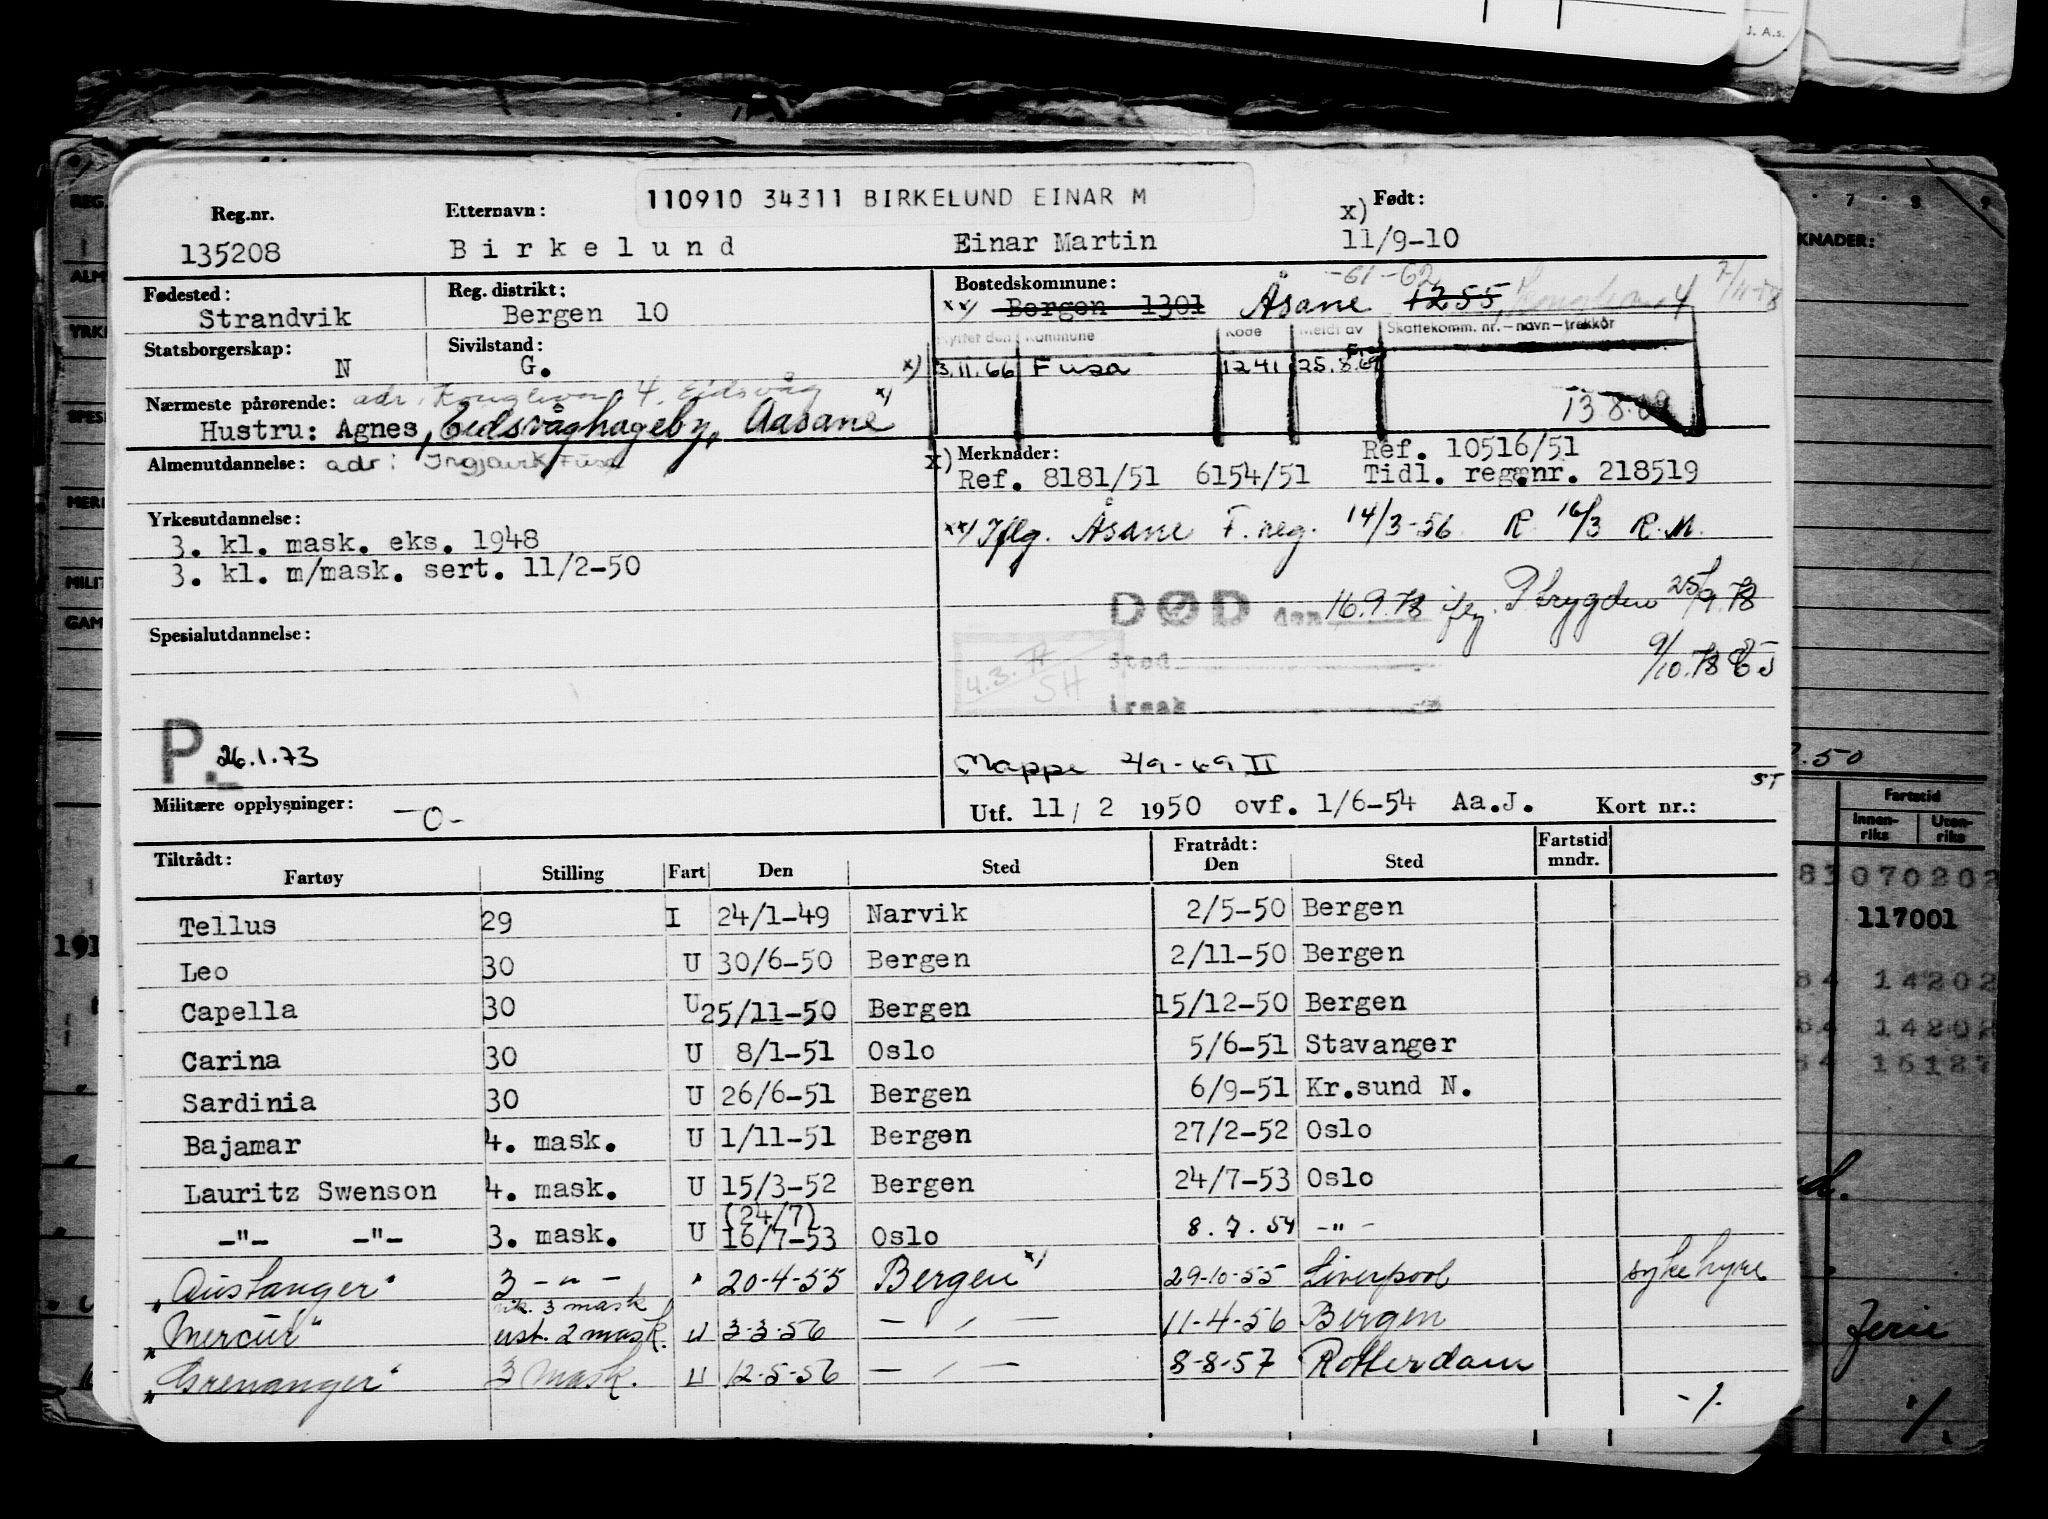 J. A.s.
110910 34311 BIRKELUND EINAR M
Reg.nr. Etternavn: x) Født:
135208 Birkelund Einar Martin 11/9-10
Fødested: Reg. distrikt: Bostedskommune: -61-62
Strandvik Bergen 10 xx) Bergen 1301 Åsane 1255
Statsborgerskap: Sivilstand: Flyttet den Kommune Kode Meldt av Skattekomm. nr.-navn-trekkår
N G. x) 3.11.66 Fusa 1241 25.8.69
Nærmeste pårørende: adr. 4. Eidsvåg x) 13.8.69
Hustru: Agnes, Eidsvåghageby, Aasane
Almenutdannelse: adr: Fusa x) Merknader: Ref. 10516/51
Ref. 8181/51 6154/51 Tidl. reg.nr. 218519
Yrkesutdannelse: xx) Iflg. Åsane F. reg. 14/3-56. R. 16/3 R.M.
3. kl. mask. eks. 1948
3. kl. m/mask. sert. 11/2-50
DØD den 16.9.78 ifg. P.trygden 25/9.78
Spesialutdannelse: 9/10.78
Sted
4.3. SH
P. 26.1.73
Mappe 49-69 II
Militære opplysninger: -0- Utf. 11/2 1950 ovf. 1/6-54 Aa.J. Kort nr.: ST
Tiltrådt: Fratrådt: Fartstid
Fartøy Stilling Fart Den Sted Den Sted mndr.
Tellus 29 I 24/1-49 Narvik 2/5-50 Bergen
Leo 30 U 30/6-50 Bergen 2/11-50 Bergen
Capella 30 U 25/11-50 Bergen 15/12-50 Bergen
Carina 30 U 8/1-51 Oslo 5/6-51 Stavanger
Sardinia 30 U 26/6-51 Bergen 6/9-51 Kr.sund N.
Bajamar 4. mask. U 1/11-51 Bergen 27/2-52 Oslo
Lauritz Swenson 4. mask. U 15/3-52 Bergen 24/7-53 Oslo
(24/7)
-"- -"- 3. mask. U 16/7-53 Oslo 8.7.54 -"-
"Austanger" 3 -"- " 20-4-55 Bergen x) 29-10-55 Liverpool sykehyre
3 mask
"Mercur" est. 2 mask. U 3-3-56 - " - 11-4-56 Bergen
"Grenanger" 3 mask. U 12-5-56 - " - 8-8-57 Rotterdam
-/.
7 8 9
KNADER:
.50
Fartstid
Innenriks Utenriks
83070202
117001
84 14202
84 14202
84 16187
ferie
./.
REG.
ALM
YRKE
SPES
MERK
MILIT
GAM
191